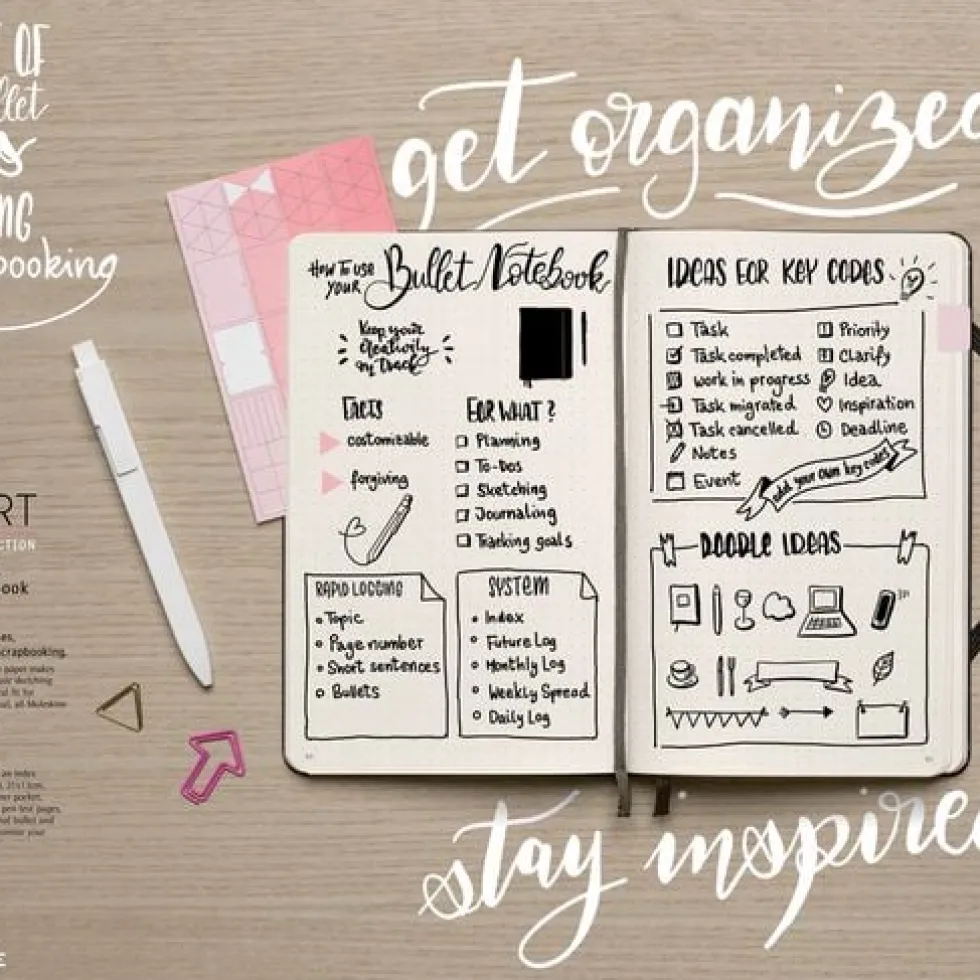 OF
get organized
booking
How to use
your Bullet Notebook
Keep your
creativity
on track
FACTS
costomizable
forgiving
FOR WHAT?
Planning
To-Dos
Sketching
Journaling
Tracking goals
RAPID LOGGING
Topic
Page number
Short sentences
Bullets
SYSTEM
Index
Future Log
Monthly Log
Weekly Spread
Daily Log
IDEAS FOR KEY CODES
Task
Task completed
work in progress
Task migrated
Task cancelled
Notes
Event
Priority
Clarify
Idea
Inspiration
Deadline
add your own key codes
DOODLE IDEAS
RT
CTION
ook
es,
crapbooking.
paper makes
sketching
fit for
all Moleskine
an index
pocket,
pen test pages,
bullet and
your
stay inspire